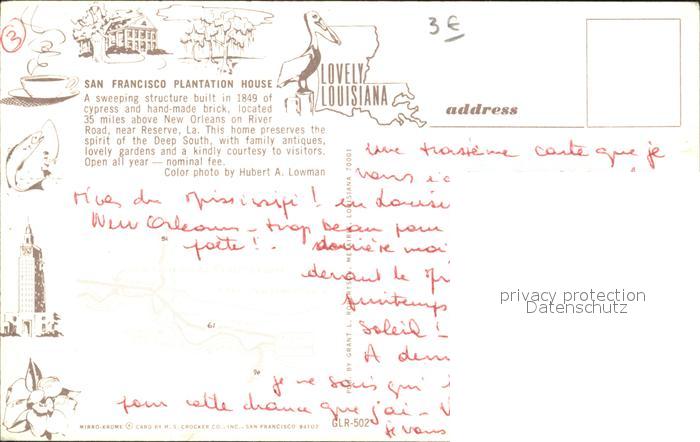 3
3 €
SAN FRANCISCO PLANTATION HOUSE
A sweeping structure built in 1849 of
cypress and hand-made brick, located
35 miles above New Orleans on River
Road, near Reserve, La. This home preserves the
spirit of the Deep South, with family antiques,
lovely gardens and a kindly courtesy to visitors.
Open all year — nominal fee.
Color photo by Hubert A. Lowman
LOVELY
LOUISIANA
address
une troisième carte que je
vous
rives du Mississipi ! en Louisi
New Orleans - trop beau pour
poète ! - derrière moi
devant le
printemps
soleil !
A dem
je ne sais qui
pour cette chance que j'ai - V
je vous
61
privacy protection
Datenschutz
PUB. BY GRANT L. ROBERTS, METAIRIE, LOUISIANA 70001
MIRRO-KROME ® CARD BY H. S. CROCKER CO., INC., SAN FRANCISCO 94107
GLR-502